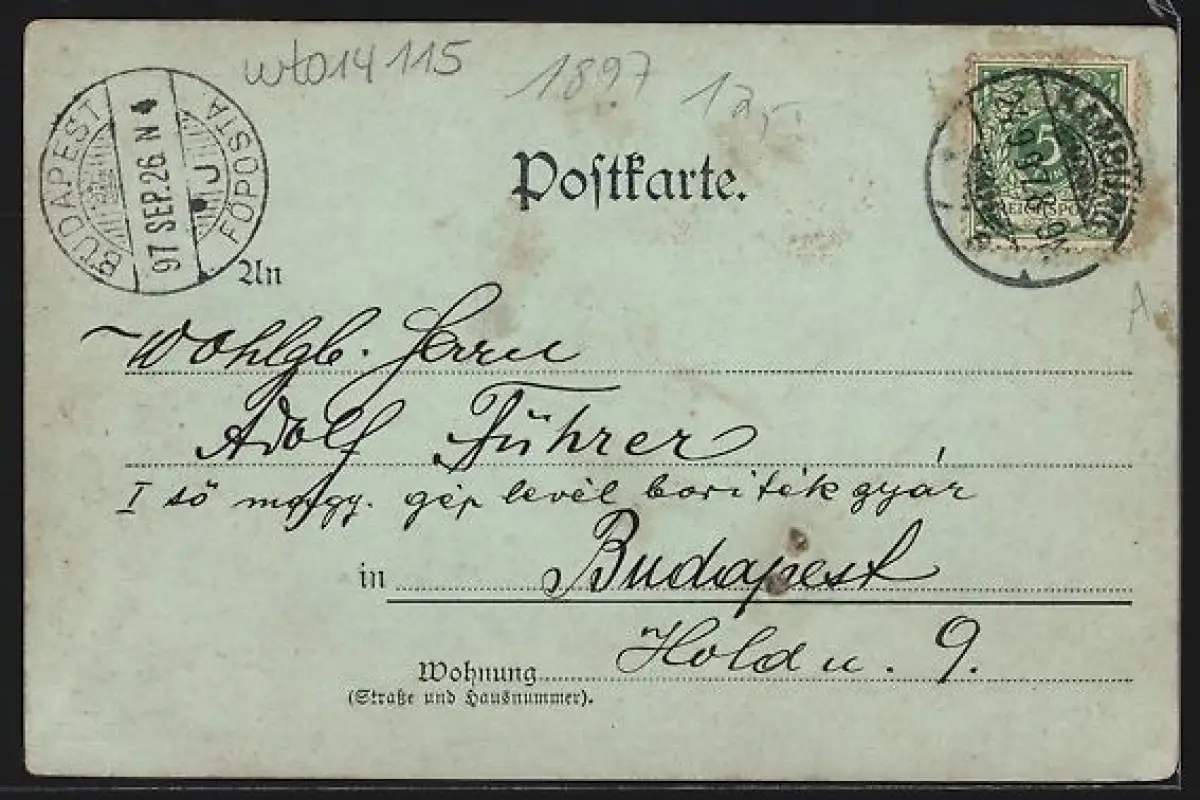 wto14115
1897
12,-
BUDAPEST
97 SEP. 26 N 4
J
FŐPOSTA
HAMBURG
5
REICHSPOST
Postkarte.
A
An
Wohlgb. Herrn
Adolf Führer
I ső magy. gép levél boriték gyár
in Budapest
Wohnung Hold u. 9.
(Straße und Hausnummer).